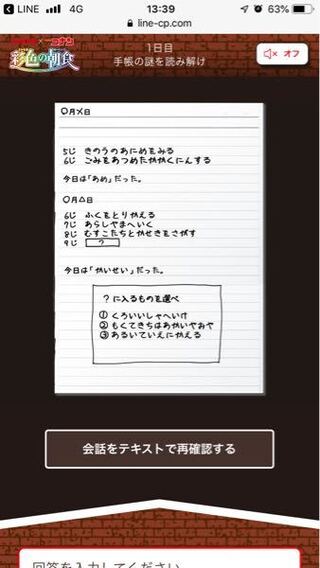 LINE 4G 13:39 63%
line-cp.com
コナン
彩色の朝食
1日目
手帳の謎を読み解け
オフ
〇月×日
5じ きのうのあにめをみる
6じ ごみをあつめたかかくにんする
今日は「あめ」だった。
〇月△日
6じ ふくをとりかえる
7じ あらしやまへいく
8じ むすこたちとかせきをさがす
9じ ?
今日は「かいせい」だった。
?に入るものを選べ
① くろいいしゃへいけ
② もくてきちはあかいやおや
③ あるいていえにかえる
会話をテキストで再確認する
回答を入力してください